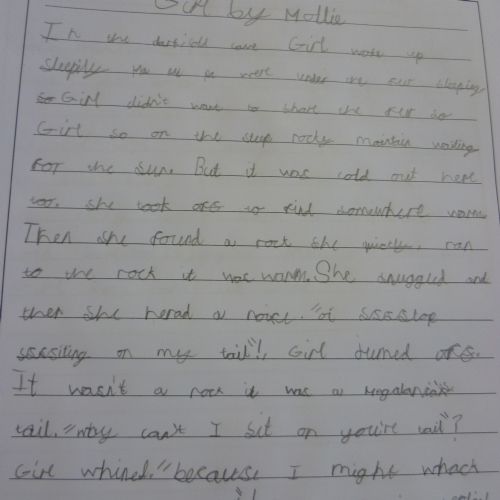 Girl by Mollie
In the cave Girl woke up
sleepily were under the fur sleeping
Girl didn't want to share the fur so
Girl so on the steep rocky maintain waiting
For the sun. But it was cold out here
too. she took off to find somewhere warm
Then she found a rock she quickly ran
to the rock it was warm. She snuggled and
then she herad a noise. "oi sssstop
ssssiting on my tail"!, Girl jumed off.
It wasn't a rock it was a
tail. "why can't I sit on you're tail"?
Girl whined. "because I might whack